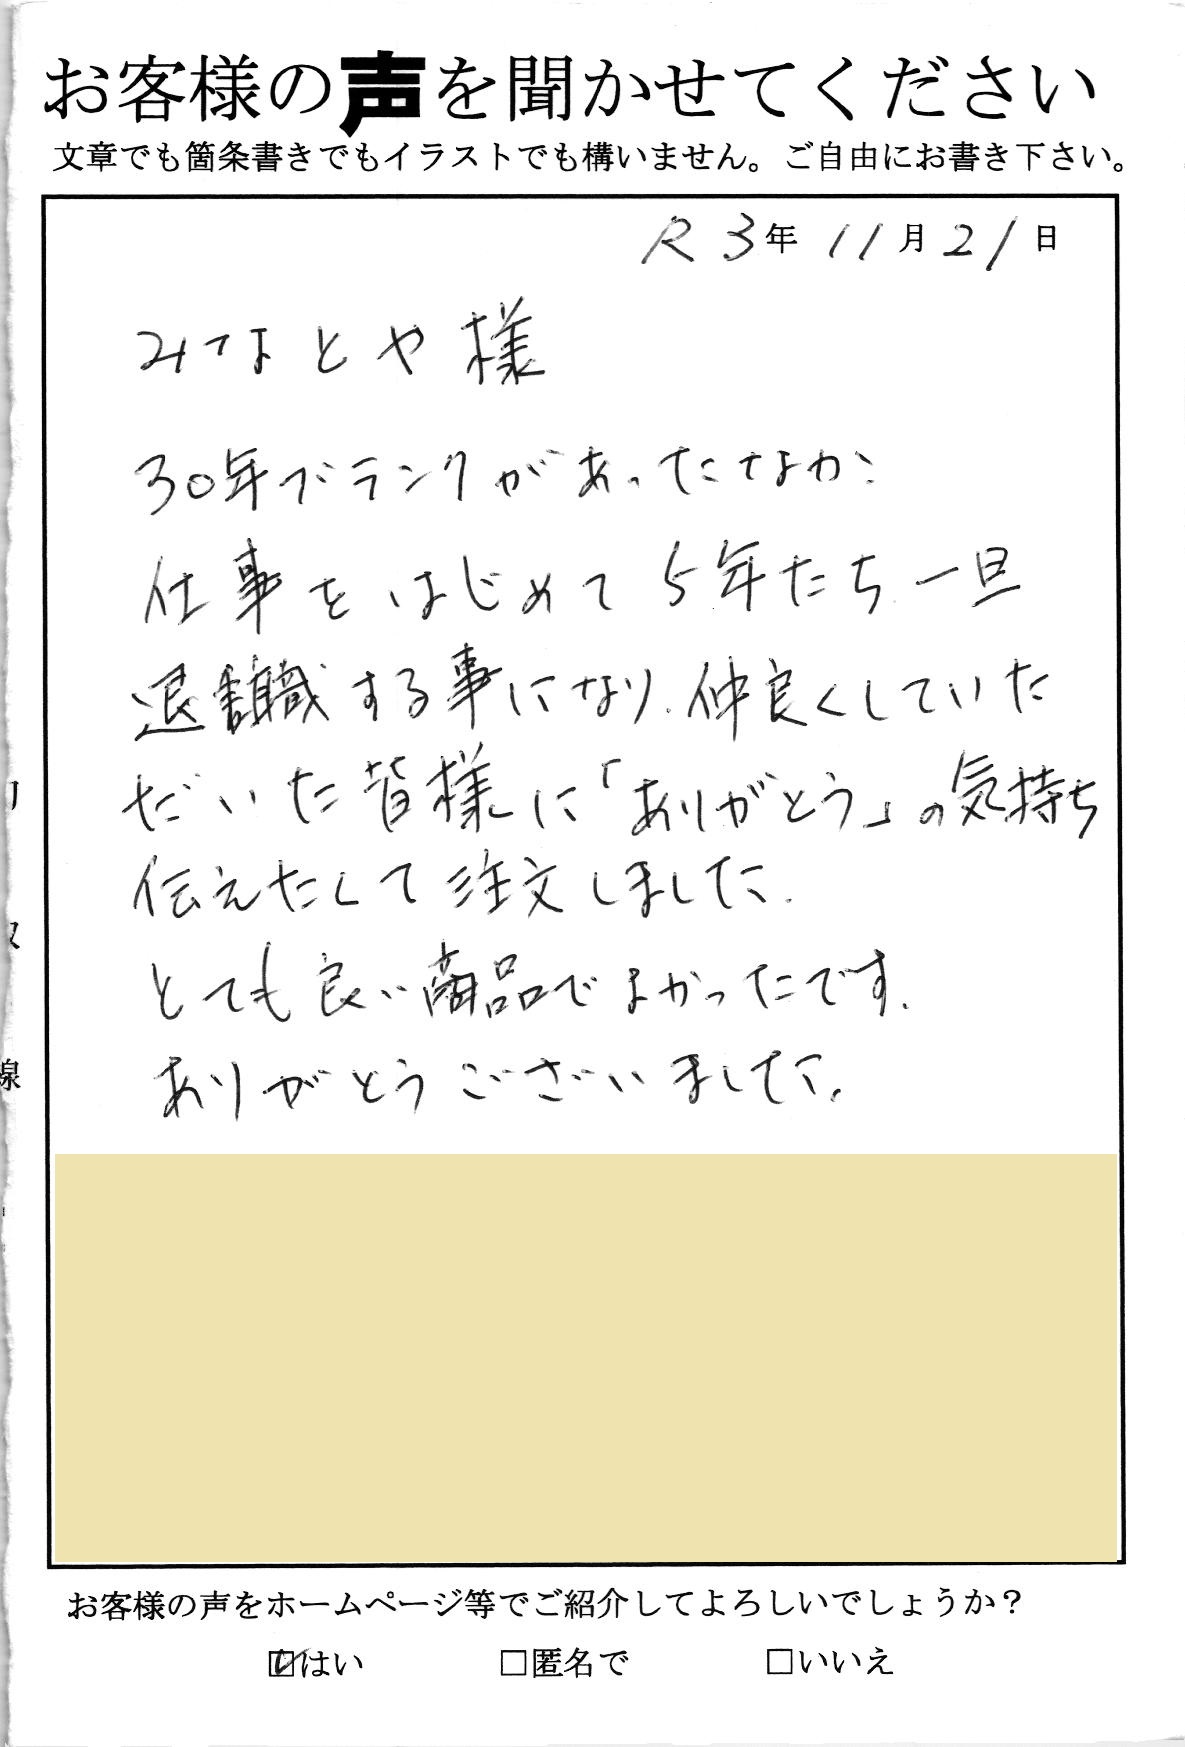 お客様の声を聞かせてください
文章でも箇条書きでもイラストでも構いません。ご自由にお書き下さい。
R3年 11月21日
みなとや様
30年ブランクがあったなか、
仕事をはじめて5年たち、一旦
退職する事になり、仲良くしていた
だいた皆様に「ありがとう」の気持ち
伝えたくて注文しました。
とても良い商品でよかったです。
ありがとうございました。
お客様の声をホームページ等でご紹介してよろしいでしょうか？
☑はい □匿名で □いいえ